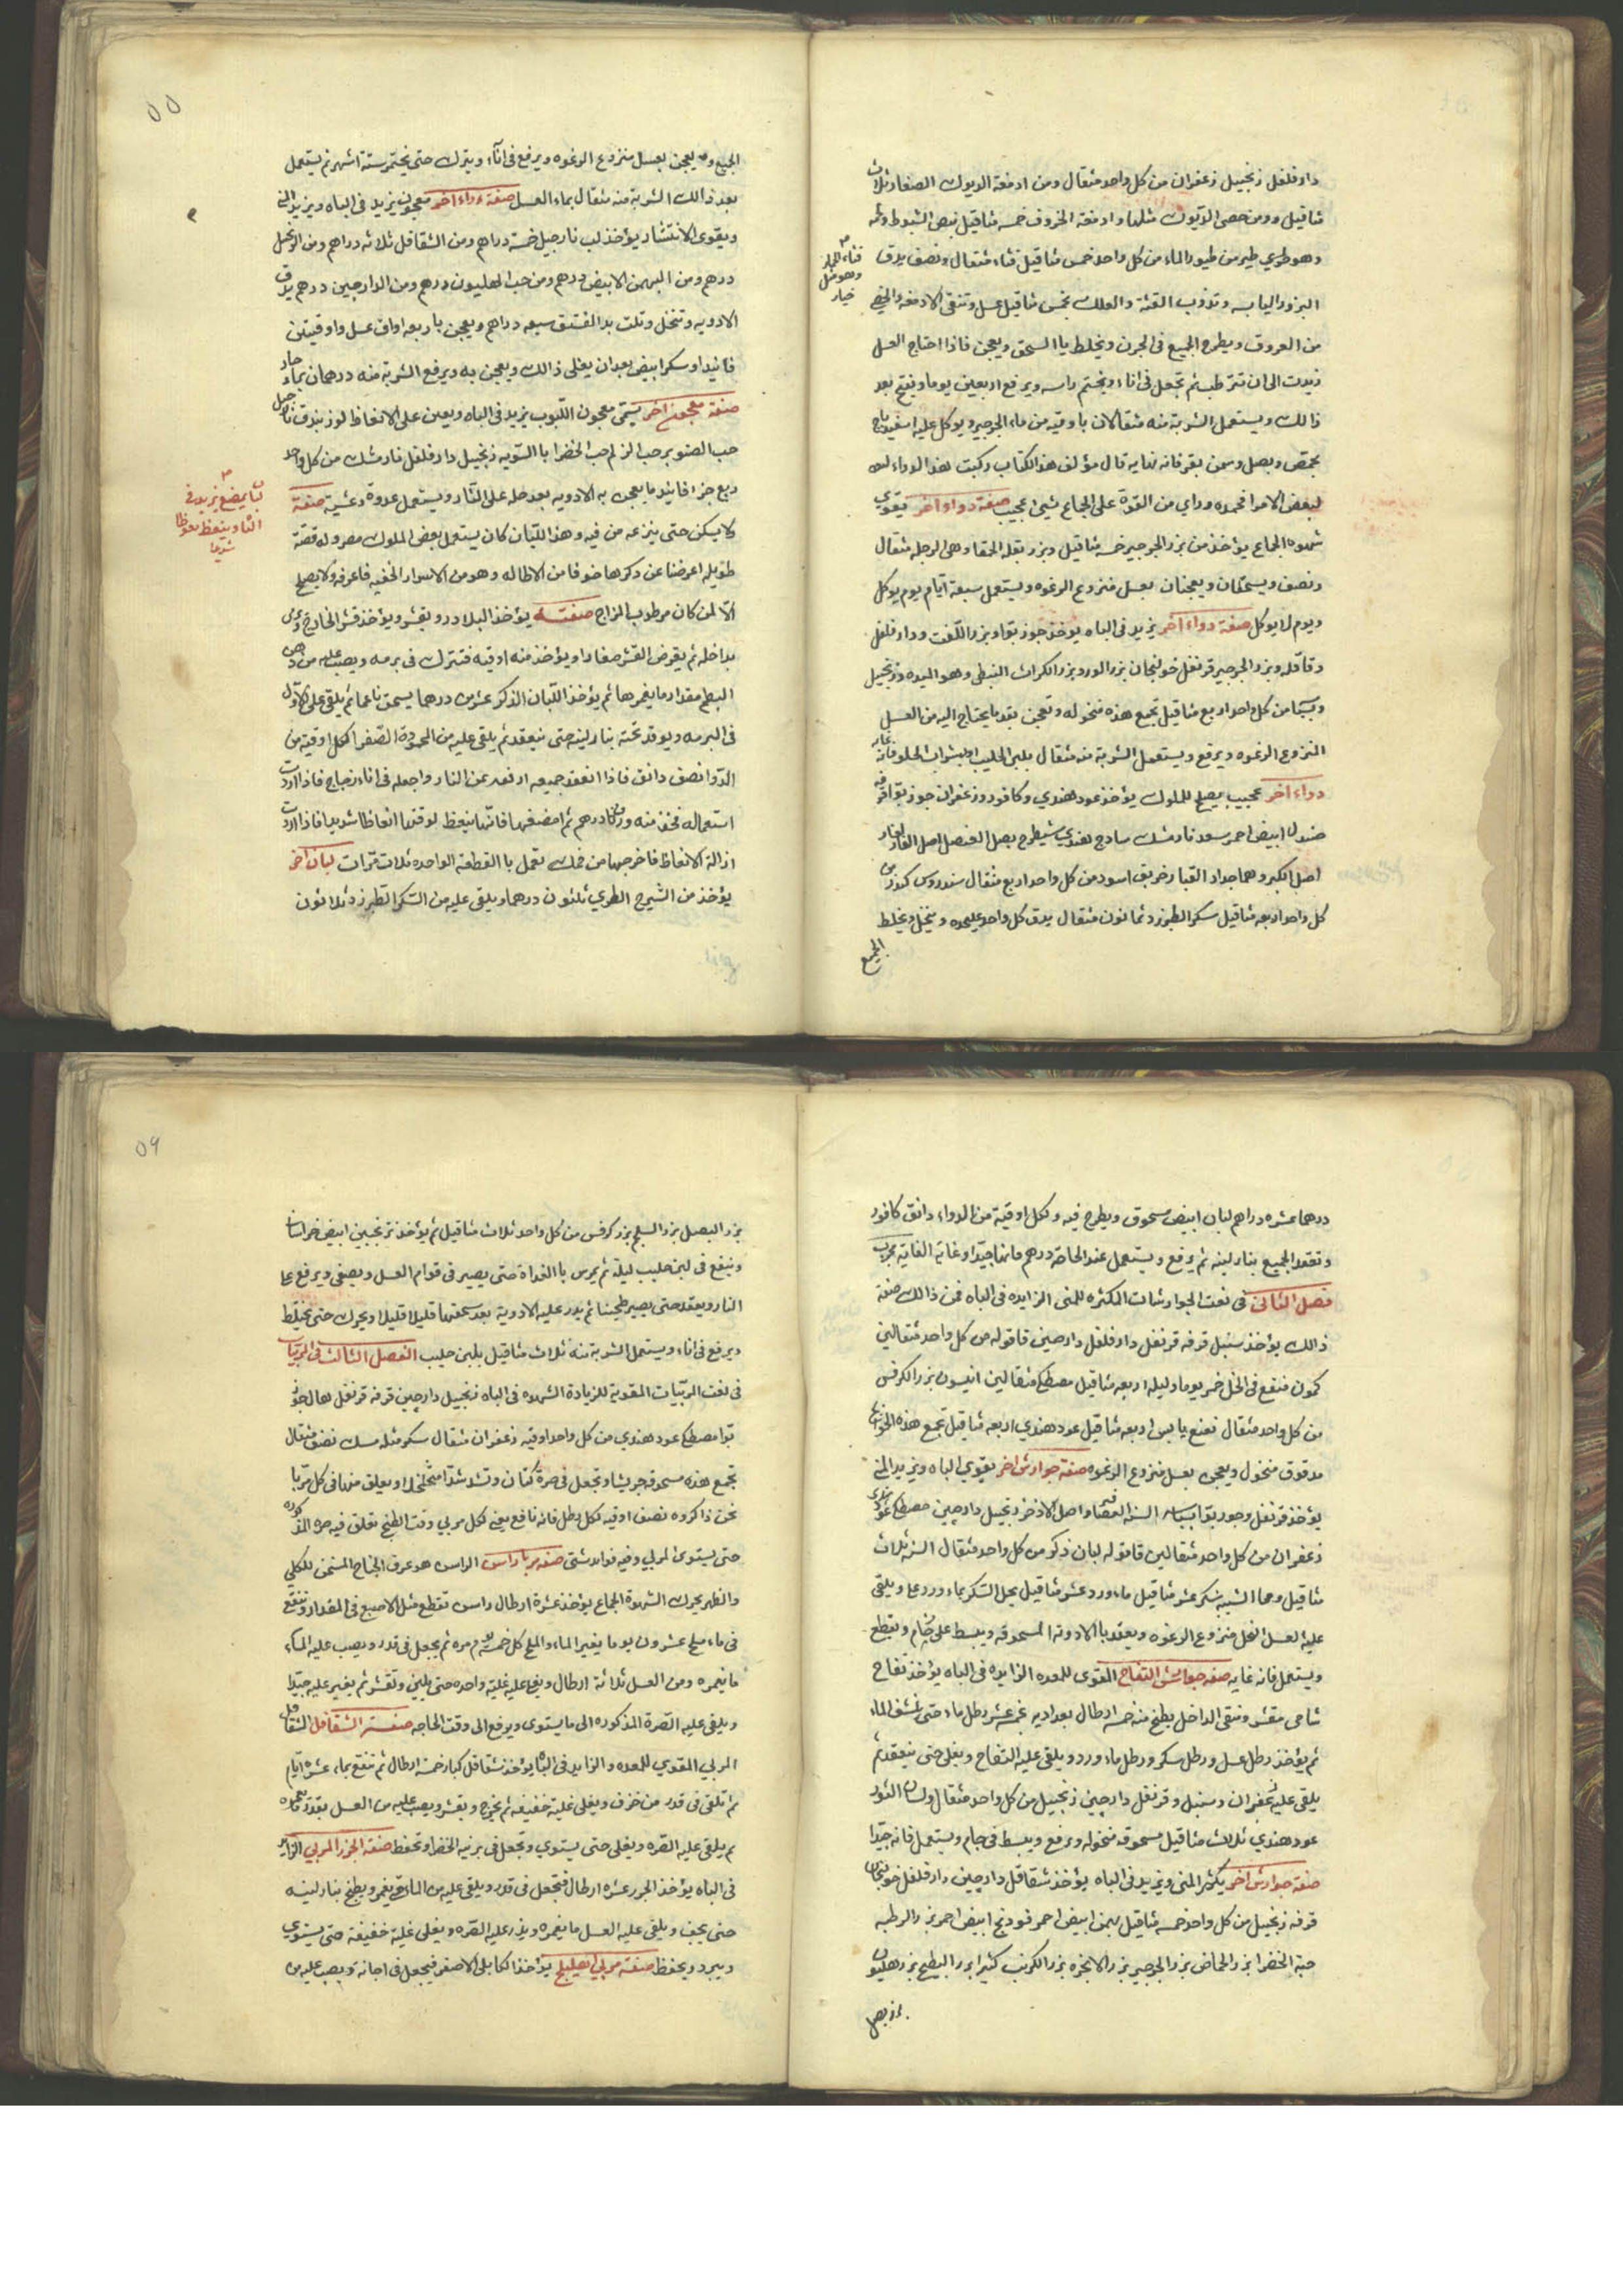 دار فلفل زنجبيل زعفران من كل واحد مثقال ومن ادمغة الديوك الصغار ثلاث
مثاقيل ومن خصى الديوك مثلها وادمغة الخروف خمسه مثاقيل بيض الشبوط
وهو طري طير من طيور الماء من كل واحد خمس مثاقيل قثاء مثقال ونصف يدق
قثاء الحمار
وهو مثل
خيار
البزور اليابسه وتذوب القنة والعلك بخمس مثاقيل عسل وتنقى الادمغه والخصى
من العروق ويطرح الجميع في الجرن ويخلط بالسحق ويعجن فاذا احتاج العسل
زيدت الى ان تترطب ثم تجعل في اناء ويختم راسه ويرفع اربعين يوما ويفتح بعد
ذالك ويستعمل الشربة منه مثقالان باوقيه من ماء الجرجير ويوكل عليه اسفيدباج
بحمص وبصل وسمن بقر فانه نهايه قال مؤلف هذا الكتاب ركبت هذا الدواء
لبعض الامرا فحمده وراي من القوة على الجماع شيئ عجيب صفة دواء آخر يقوي
شهوه الجماع يؤخذ من بزر الجرجير خمسه مثاقيل وبزر بقلة الحمقا وهي الرجله مثقال
ونصف ويسحقان ويعجنان بعسل منزوع الرغوه ويستعمل سبعة ايام يوم يوكل
ويوم لا يوكل صفة دواء آخر يزيد في الباه يؤخذ جوز بوا وبزر اللفت ودار فلفل
وقاقله وبزر الجرجير قرنفل خولنجان بزر الورد بزر الكراث النبطى وهو الميده وزنجبيل
من كل واحد اربع مثاقيل تجمع هذه منخوله وتعجن بقدر ما يحتاج اليه من العسل
المنزوع الرغوه ويرفع ويستعمل الشربة منه مثقال بلبن الحليب او بشراب الحلو فانه غايه
دواء آخر عجيب يصلح للملوك يؤخذ عود هندي وكافور وزعفران جوز بوا قرفه
صندل ابيض احمر سعد نارمشك سادج هندي شيطرج بصل العنصل اصل الفار
اصل الكبر وهما جدار القبار خربق اسود من كل واحد اربع مثقال سندروس كندر من
كل واحد اربعه مثاقيل سكر الطبرزد ثمانون مثقال يدق كل واحد عليحده وينخل ويخلط
الجميع
٥٥
الجميع ويعجن بعسل منزوع الرغوه ويرفع في اناء ويترك حتى يختمر ستة اشهر ثم يستعمل
بعد ذالك الشربة منه مثقال بماء العسل صفة دواء آخر معجون يزيد في الباه ويزيد المني
ويقوى الانتشار يؤخذ لب نارجيل خمسة دراهم ومن الشقاقل ثلاثه دراهم ومن الزنجبيل
درهم ومن البهمن الابيض درهم ومن حب الهليون درهم ومن الدارجين درهم يدق
الادويه وتنخل وتلت بدالفستق سبعه دراهم ويعجن باربعه اواق عسل واوقيتين
فانيد او سكر ابيض بعد ان يغلى ذالك ويعجن به ويرفع الشربة منه درهمان بماء حار
صفة معجون آخر يسمى معجون اللبوب يزيد في الباه ويعين على الانعاظ لوز بندق نارجيل
حب الصنوبر حب الزلم حب الخضرا بالسويه زنجبيل دار فلفل نارمشك من كل واحد
ربع جزء فانيد ما يعجن به الادويه بعد حله على النار ويستعمل غدوة وعشية صفة
لبان يمضغ يزيد في
الباه وينعظ نعوظا
شديدا
لا يسكن حتى ينزعه من فيه وهذا اللبان كان يستعمل بعض الملوك مصر وله قصة
طويله اعرضنا عن ذكرها خوفا من الاطاله وهو من الاسرار الخفيه فاعرفه ولا يصلح
الا لمن كان مرطوب المزاج صفته يؤخذ البلادر ويقشر ويؤخذ قشر الخارج ويرمى
بداخله ثم يقرض القشر صغارا ويؤخذ منه اوقيه فتترك في برمه ويصب عليه من دهن
البطم مقدار ما يغمرها ثم يؤخذ اللبان الذكر عشرين درهما يسحق ناعما ثم يلقى على الاول
في البرمه ويوقد تحته بنار لينه حتى ينعقد ثم يلقى عليه من المحمودة الصفرا لكل اوقية من
الدوا نصف دانق فاذا انعقد جميعه ارفعه عن النار واجعله في اناء زجاج فاذا اردت
استعماله فخذ منه وزن درهم ثم امضغها فانها ينعظ لوقتها انعاظا شديدا فاذا اردت
ازالة الانعاظ فاخرجها من فمك تعمل بالقطعة الواحده ثلاث مرات لبان آخر
يؤخذ من الشيرج الطري ثلثون درهما ويلقى عليه من السكر الطبرزد ثلاثون
درهما عشره دراهم لبان ابيض مسحوق ويطرح فيه ولكل اوقية من الدواء دانق كافور
وتعقد الجميع بنار لينه ثم يرفع ويستعمل عند الحاجة درهم فانها جيدا وغاية الغاية مجرب
فصل الثاني في نعت الجوارشات المكثره للمنى الزايده في الباه فمن ذالك صفة
ذالك يؤخذ سنبل قرفه قرنفل دار فلفل دارصيني قاقوله من كل واحد مثقالين
كمون منقع في الخل خمر يوما وليله اربعه مثاقيل مصطكى مثقالين انيسون بزر الكرفس
من كل واحد مثقال نعنع يابس اربعه مثاقيل عود هندي اربعه مثاقيل تجمع هذه الحوائج
مدقوق منخول ويعجن بعسل منزوع الرغوه صفة جوارش آخر يقوي الباه ويزيد المني
يؤخذ قرنفل وجوز بوا بسباسه السنة العصافير واصل الاذخر زنجبيل دارجيني مصطكى عود هندي
زعفران من كل واحد مثقالين قاقوله لبان ذكر من كل واحد مثقال اشنه ثلاث
مثاقيل وهما الشيبه سكر عشر مثاقيل ماء ورد عشر مثاقيل يحل السكر بماء ورد على ويلقى
عليه العسل النحل منزوع الرغوه ويعقد بالادويه المسحوقه ويبسط على رخام ويقطع
ويستعمل فانه غايه صفه جوارش التفاح المقوى للمعده الزايده في الباه يؤخذ تفاح
شامى مقشر ومنقى الداخل يطبخ منه خمسه ارطال بغداديه بخمسة عشر رطل ماء حتى ينشف الماء
ثم يؤخذ رطل عسل ورطل سكر ورطل ماء ورد ويلقى عليه التفاح ويغلى حتى ينعقد ثم
يلقى عليه زعفران وسنبل وقرنفل دارجيني زنجبيل من كل واحد مثقال ولسان الثور
عود هندي ثلاث مثاقيل مسحوقه منخوله ويرفع ويبسط في جام ويستعمل فانه جيدا
صفة جوارش آخر يكثر المنى ويزيد في الباه يؤخذ شقاقل دارجيني دار فلفل خولنجان
قرفه زنجبيل من كل واحد خمسه مثاقيل بهمن ابيض احمر تودنج ابيض احمر بزر الرطبه
حبة الخضرا بزر الحماض بزر الجرجير بزر الانجره بزر الكرنب كثيرا بزر البطيخ بزر هليون
بزر بصل
٥٦
بزر البصل بزر السلجم بزر كرفس من كل واحد ثلاث مثاقيل ثم يؤخذ ترنجبين ابيض خراسانى
وينقع في لبن حليب ليلة ثم يمرس بالغداة حتى يصير في قوام العسل ويصفى ويرفع على
النار ويعقد حتى يصير طحينا ثم يدر عليه الادوية بعد سحقها قليلا قليلا ويحرك حتى يختلط
ويرفع في اناء ويستعمل الشربة منه ثلاث مثاقيل بلبن حليب الفصل الثالث في المربيات
في نعت المربيات المقوية للزيادة الشهوه في الباه زنجبيل دارجيني قرفه قرنفل هال جوز
بوا مصطكى عود هندي من كل واحد اوقيه زعفران مثقال سكر مثله مسك نصف مثقال
تجمع هذه مسحوقه جريشا وتجعل في صرة كتان وتشد شدا متخلخلا ويعلق منها في كل مربا
نحن ذاكروه نصف اوقيه لكل رطل فانه نافع يعني لكل مربي وقت الطبخ تعلق فيه صره المذكوره
حتى يستوى المربي وفيه فوايد شتى صفه مربا راسن الراسن هو عرق الجناح المسخن للكلى
والظهر يحرك الشهوة الجماع يؤخذ عشرة ارطال راسن تقطع مثل الاصبع في المقدار وتنقع
في ماء ملح عشرون يوما يغير الماء والملح كل خمسه يوم مره ثم يجعل في قدر ويصب عليه الماء
ما يغمره ومن العسل ثلاثة ارطال ويغلى عليه غلية واحده حتى يلين وتقشر ثم يغير عليه جيدا
ويلقى عليه الصرة المذكوره الى ما يستوى ويرفع الى وقت الحاجه صفة الشقاقل الشقاقل
المربي المقوي للمعده والزايد في الباه يؤخذ شقاقل كبار خمسة ارطال ثم تنقع بماء عشره ايام
ثم تلقى في قدر من خزف ويغلى غلية خفيفه ثم يخرج ويقشر ويصب عليه من العسل بقدر ما يغمره
ثم يلقى عليه الصره ويغلى حتى يستوي وتجعل في برنيه الخضرا وتحفظ صفة الجزر المربي الزايد
في الباه يؤخذ الجزر عشره ارطال فتجعل في قدر ويلقى عليه من الماء حتى يغمر ويطبخ بنار لينه
حتى يجف ويلقى عليه العسل ما يغمره ويذر عليه الصره ويغلى غلية خفيفة حتى يستوي
ويبرد ويحفظ صفة مربي اهليلج يؤخذ الكابلي الاصفر فيجعل في اجانة ويصب عليه من